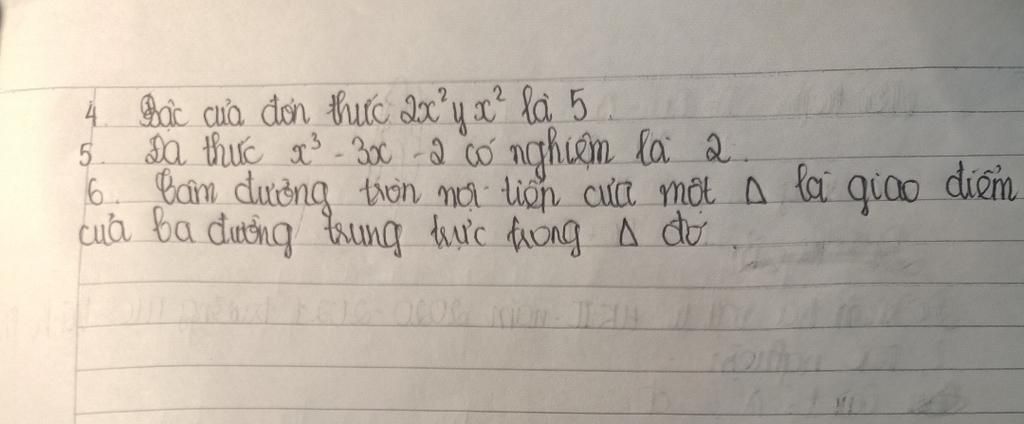 4. Bậc của đơn thức 2x²yx² là 5.
5. Đa thức x³ - 3x - 2 có nghiệm là 2.
6. Tâm đường tròn nội tiếp của một Δ là giao điểm
của ba đường trung trực trong Δ đó.